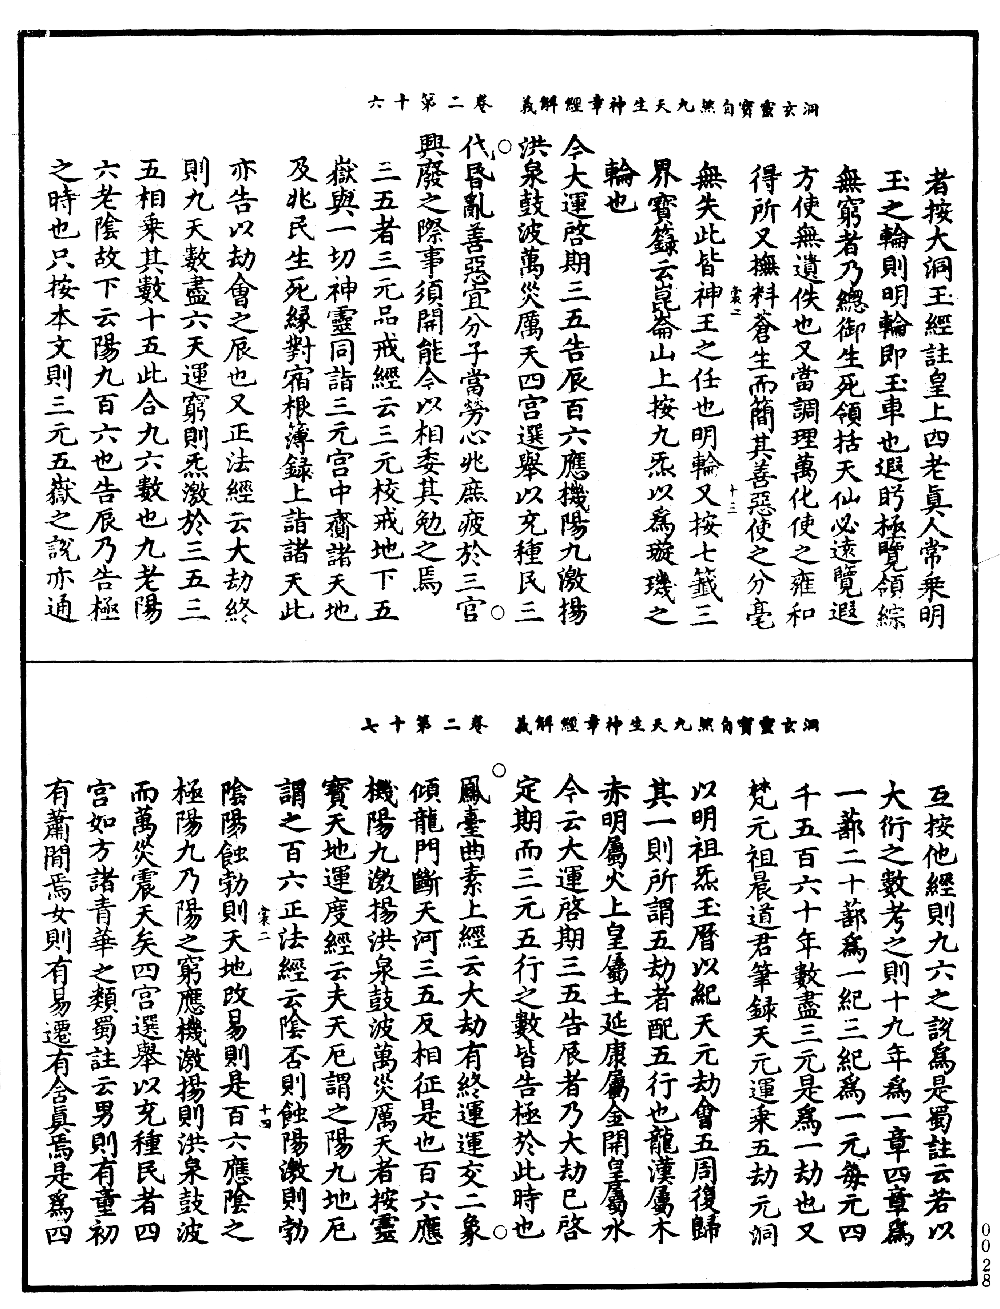 洞玄靈寶自然九天生神章經解義　卷二第十六
者按大洞玉經註皇上四老真人常乘明
玉之輪則明輪即玉車也遐眄極覽領綜
無窮者乃總御生死領括天仙必遠覽遐
方使無遺佚也又當調理萬化使之雍和
得所又撫料蒼生而簡其善惡使之分毫
無失此皆神王之任也明輪又按七籤三
裳二　十三
界寶籙云崑崙山上按九炁以為璇璣之
輪也
今大運啓期三五告辰百六應機陽九激揚
洪泉鼓波萬災厲天四宮選舉以充種民三
代昏亂善惡宜分子當勞心兆庶疲於三官
興廢之際事須開能今以相委其勉之焉
三五者三元品戒經云三元校戒地下五
嶽與一切神靈同詣三元宮中齋諸天地
及兆民生死緣對宿根簿録上詣諸天此
亦告以劫會之辰也又正法經云大劫終
則九天數盡六天運窮則炁激於三五三
五相乘其數十五此合九六數也九老陽
六老陰故下云陽九百六也告辰乃告極
之時也只按本文則三元五嶽之說亦通
洞玄靈寶自然九天生神章經解義　卷二第十七
互按他經則九六之說為是蜀註云若以
大衍之數考之則十九年為一章四章為
一蔀二十蔀為一紀三紀為一元每元四
千五百六十年數盡三元是為一劫也又
梵元祖晨道君筆録天元運乘五劫元洞
以明祖炁玉曆以紀天元劫會五周復歸
其一則所謂五劫者配五行也龍漢屬木
赤明屬火上皇屬土延康屬金開皇屬水
今云大運啓期三五告辰者乃大劫已啓
定期而三元五行之數皆告極於此時也
鳳臺曲素上經云大劫有終運運交二象
傾龍門斷天河三五反相征是也百六應
機陽九激揚洪泉鼓波萬災厲天者按靈
寶天地運度經云夫天厄謂之陽九地厄
謂之百六正法經云陰否則蝕陽激則勃
裳二　十四
陰陽蝕勃則天地改易則是百六應陰之
極陽九乃陽之窮應機激揚則洪泉鼓波
而萬災震天矣四宮選舉以充種民者四
宮如方諸青華之類蜀註云男則有童初
有蕭閒焉女則有易遷有含真焉是為四
0028